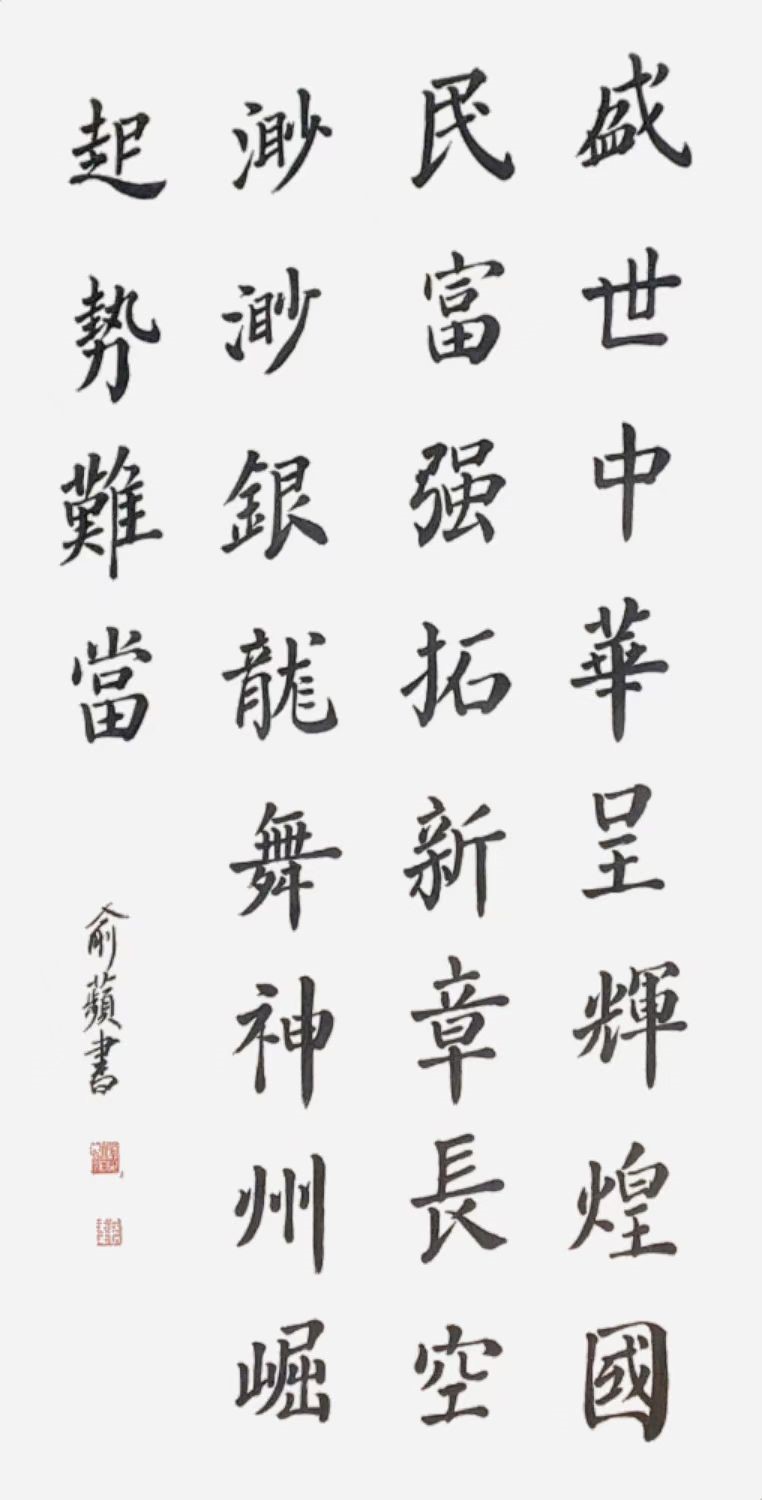 盛世中華呈輝煌國
民富强拓新章長空
渺渺銀龍舞神州崛
起勢難當
俞蘋書